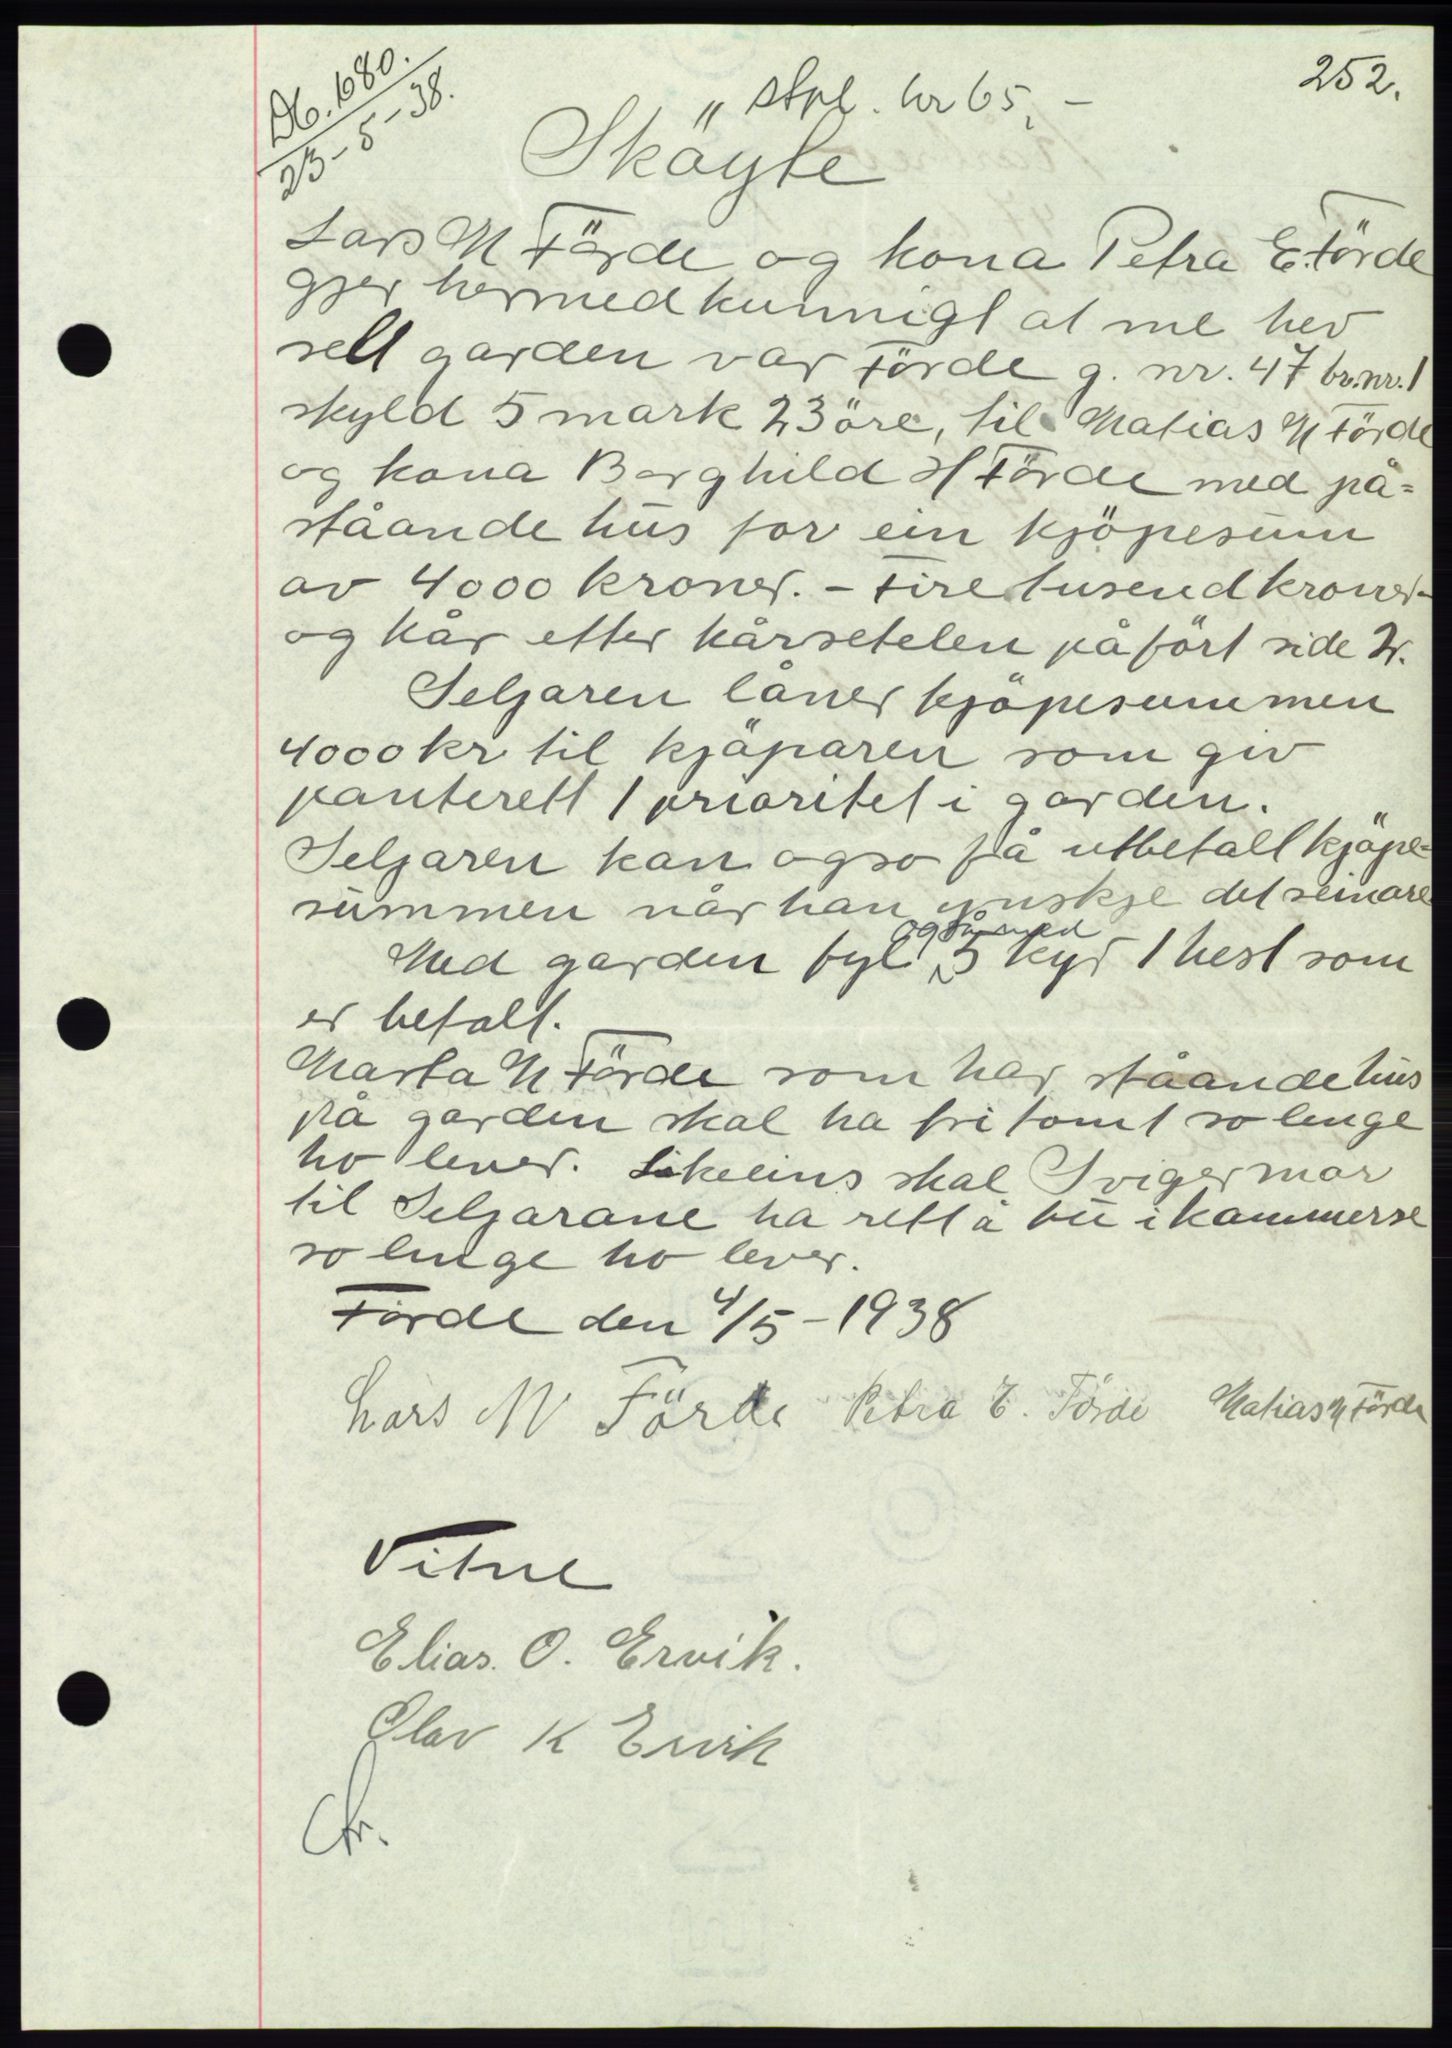 252.
Db. 680.
23-5-38.
Stpl. kr 65,-
Sköyte
Lars N Förde og kona Petra E. Förde
gjer hermed kunnigt at me hev
sell garden vår Förde g. nr. 47 br.nr. 1
skyld 5 mark 23 öre, til Matias N Förde
og kona Borghild H Förde med på=
ståande hus for ein kjöpesum
av 4000 kroner. - Fire tusend kroner-
og kår etter kårsetelen påfört side 2.
Seljaren låner kjöpesummen
4000 kr til kjöparen som giv
panterett 1 prioritet i garden.
Seljaren kan ogso få utbetalt kjöpe=
summen når han ynskje det seinare
også med
Med garden fyl 5 kyr 1 hest som
er betalt.
Marta N Förde som har ståande hus
på garden skal ha fri tomt so lenge
ho lever. Likeeins skal Svigermor
til Seljarane ha rett å bu i kammerse
so lenge ho lever.
Förde den 4/5-1938
Lars N Förde Petra E. Förde Matias N Förde
Vitne
Elias. O. Ervik.
Olav K Ervik